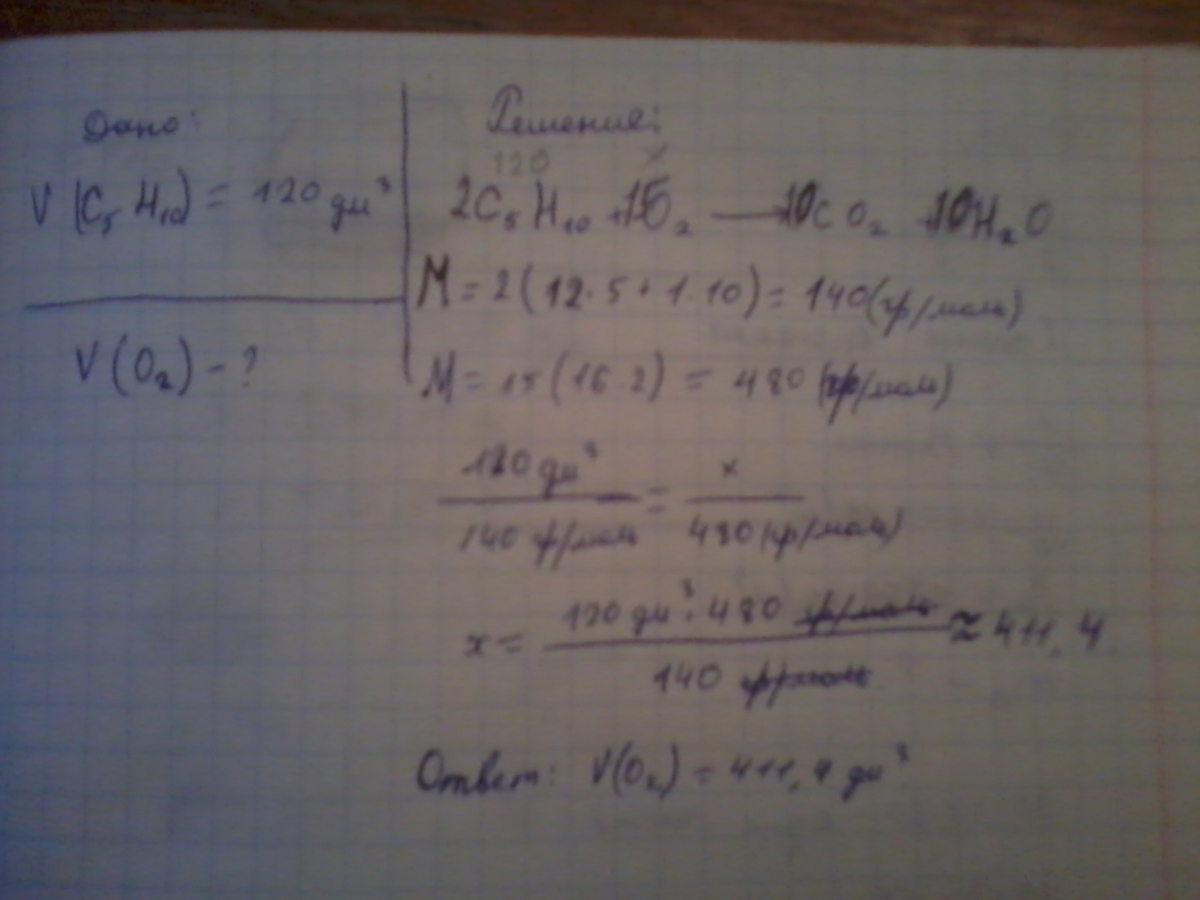 Дано:
V (C₅ H₁₀) = 120 дм³
V (O₂) - ?
Решение:
120 x
2C₅ H₁₀ + 15O₂ → 10CO₂ + 10H₂O
M = 2 ( 12 · 5 + 1 · 10 ) = 140 (гр/моль)
M = 15 ( 16 · 2 ) = 480 (гр/моль)
120 дм³ / 140 гр/моль = x / 480 (гр/моль)
x = 120 дм³ · 480 гр/моль / 140 гр/моль ≈ 411,4
Ответ: V(O₂) = 411,4 дм³